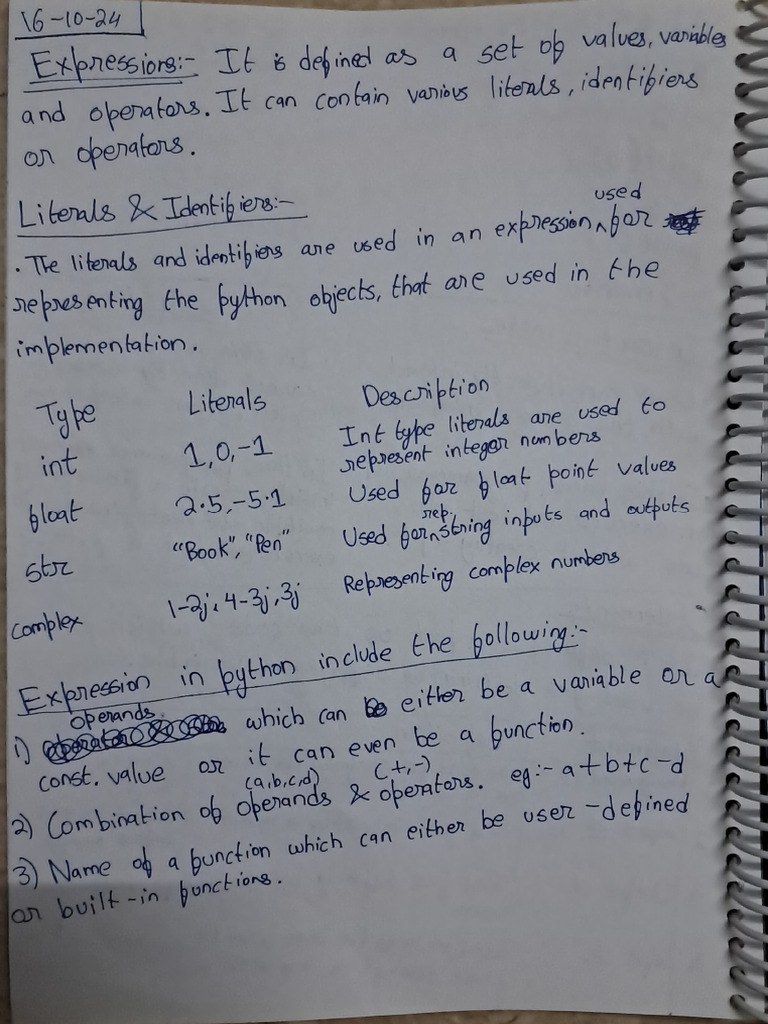 16-10-24
Expressions:- It is defined as a set of values, variables
and operators. It can contain various literals, identifiers
or operators.
Literals & Identifiers:-
. The literals and identifiers are used in an expression, used for
representing the python objects, that are used in the
implementation.
Type Literals Description
int 1, 0, -1 Int type literals are used to
represent integer numbers
float 2.5, -5.1 Used for float point values
str "Book", "Pen" Used for rep. string inputs and outputs
complex 1-2j, 4-3j, 3j Representing complex numbers
Expression in python include the following:-
1) operands which can either be a variable or a
const. value or it can even be a function.
2) Combination of operands (a,b,c,d) & operators (+,-). eg:- a+b+c-d
3) Name of a function which can either be user-defined
or built-in functions.